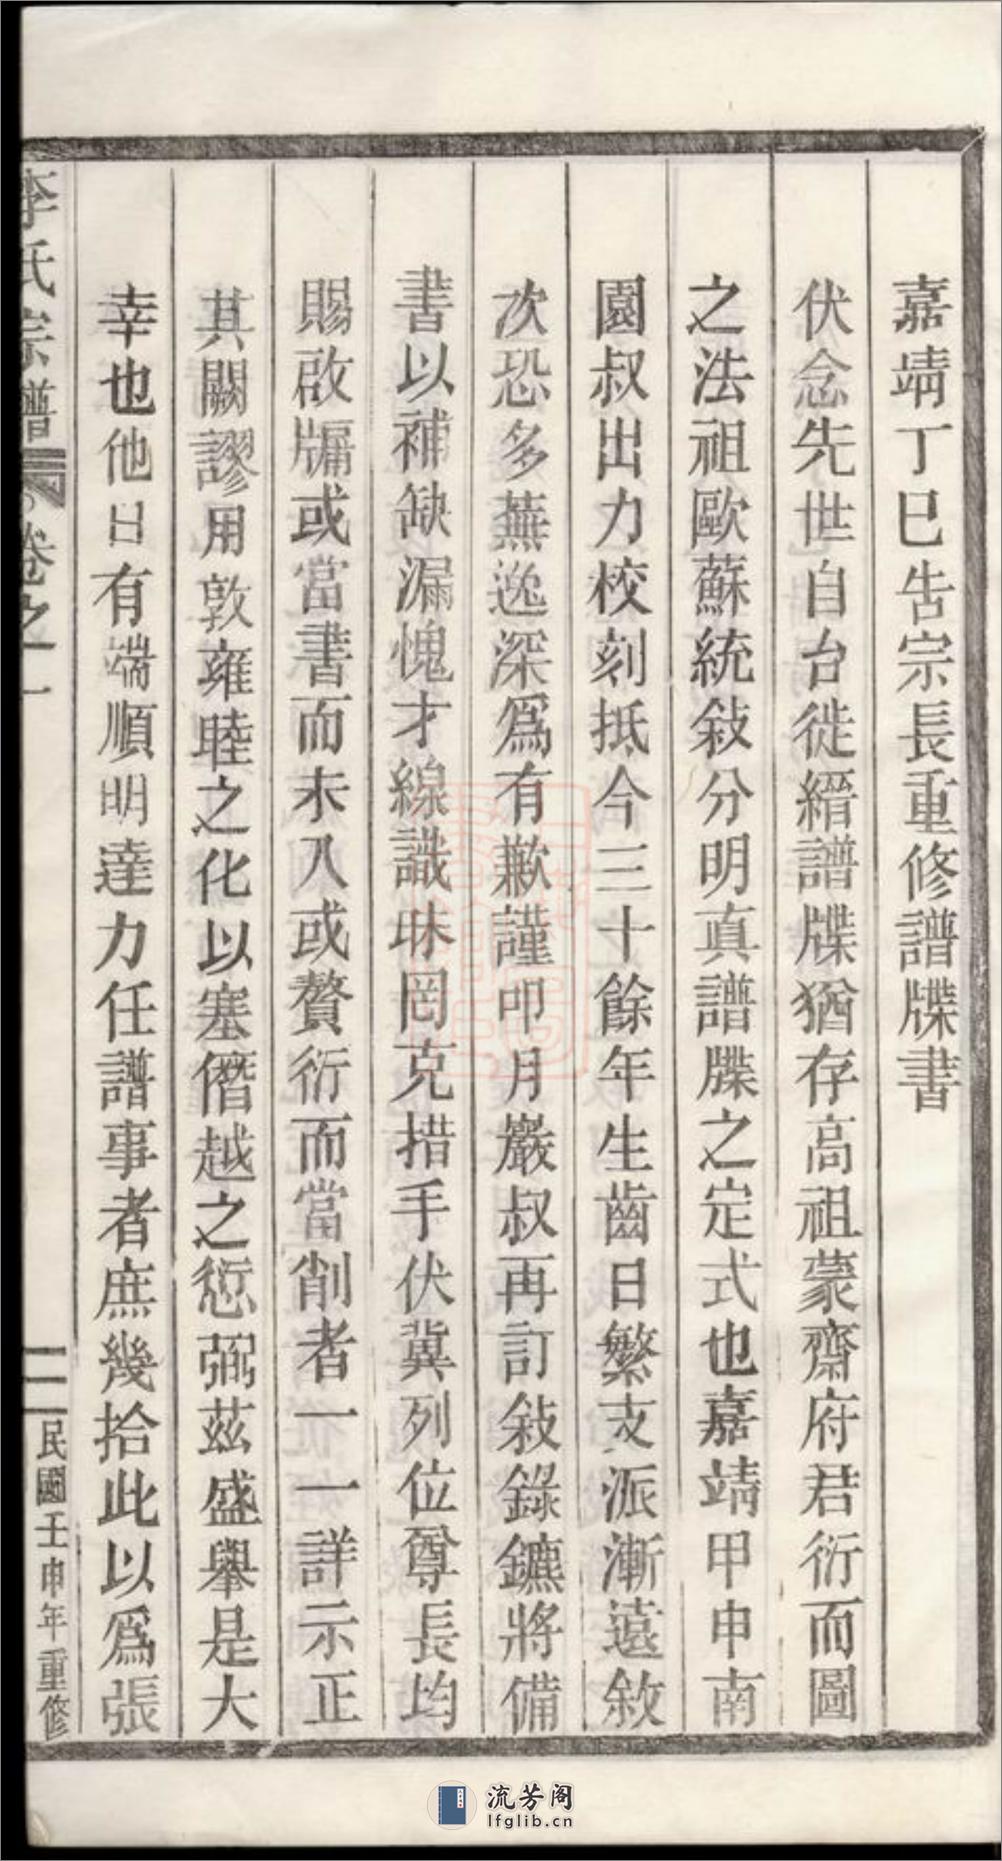 嘉靖丁巳告宗長重修譜牒書
伏念先世自台徙縉譜牒猶存高祖蒙齋府君衍而圖
之法祖歐蘇統敍分明真譜牒之定式也嘉靖甲申南
園叔出力校刻抵今三十餘年生齒日繁支派漸遠敘
次恐多蕪逸深爲有歉謹叩月巖叔再訂敍錄鑣將備
書以補缺漏愧才線識昧罔克措手伏冀列位尊長均
賜啟牖或當書而未入或贅衍而當削者一一詳示正
其闕謬用敦雍睦之化以塞僭越之愆弼茲盛舉是大
幸也他日有端順明達力任譜事者庶幾拾此以爲張
李氏宗譜
卷之一
一
民國壬申年重修
流芳阁
lfglib.cn